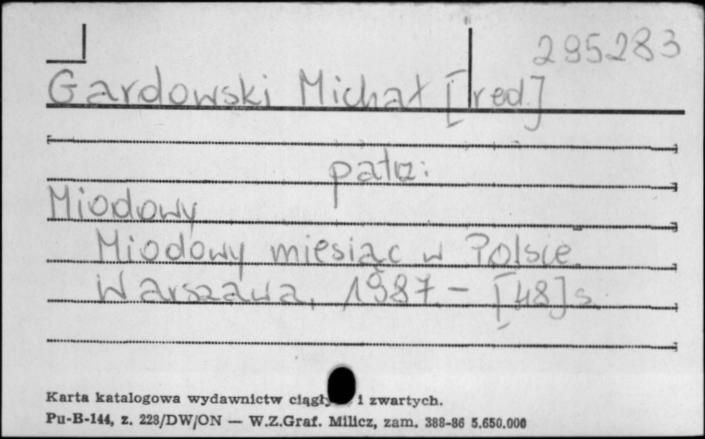 295283
Gardowski Michał [red.]
patrz:
Miodowy
Miodowy miesiąc w Polsce
Warszawa, 1987. - [48] s.
Karta katalogowa wydawnictw i zwartych.
Pu-B-144, z. 228/DW/ON — W.Z.Graf. Milicz, zam. 388-86 5.650.000